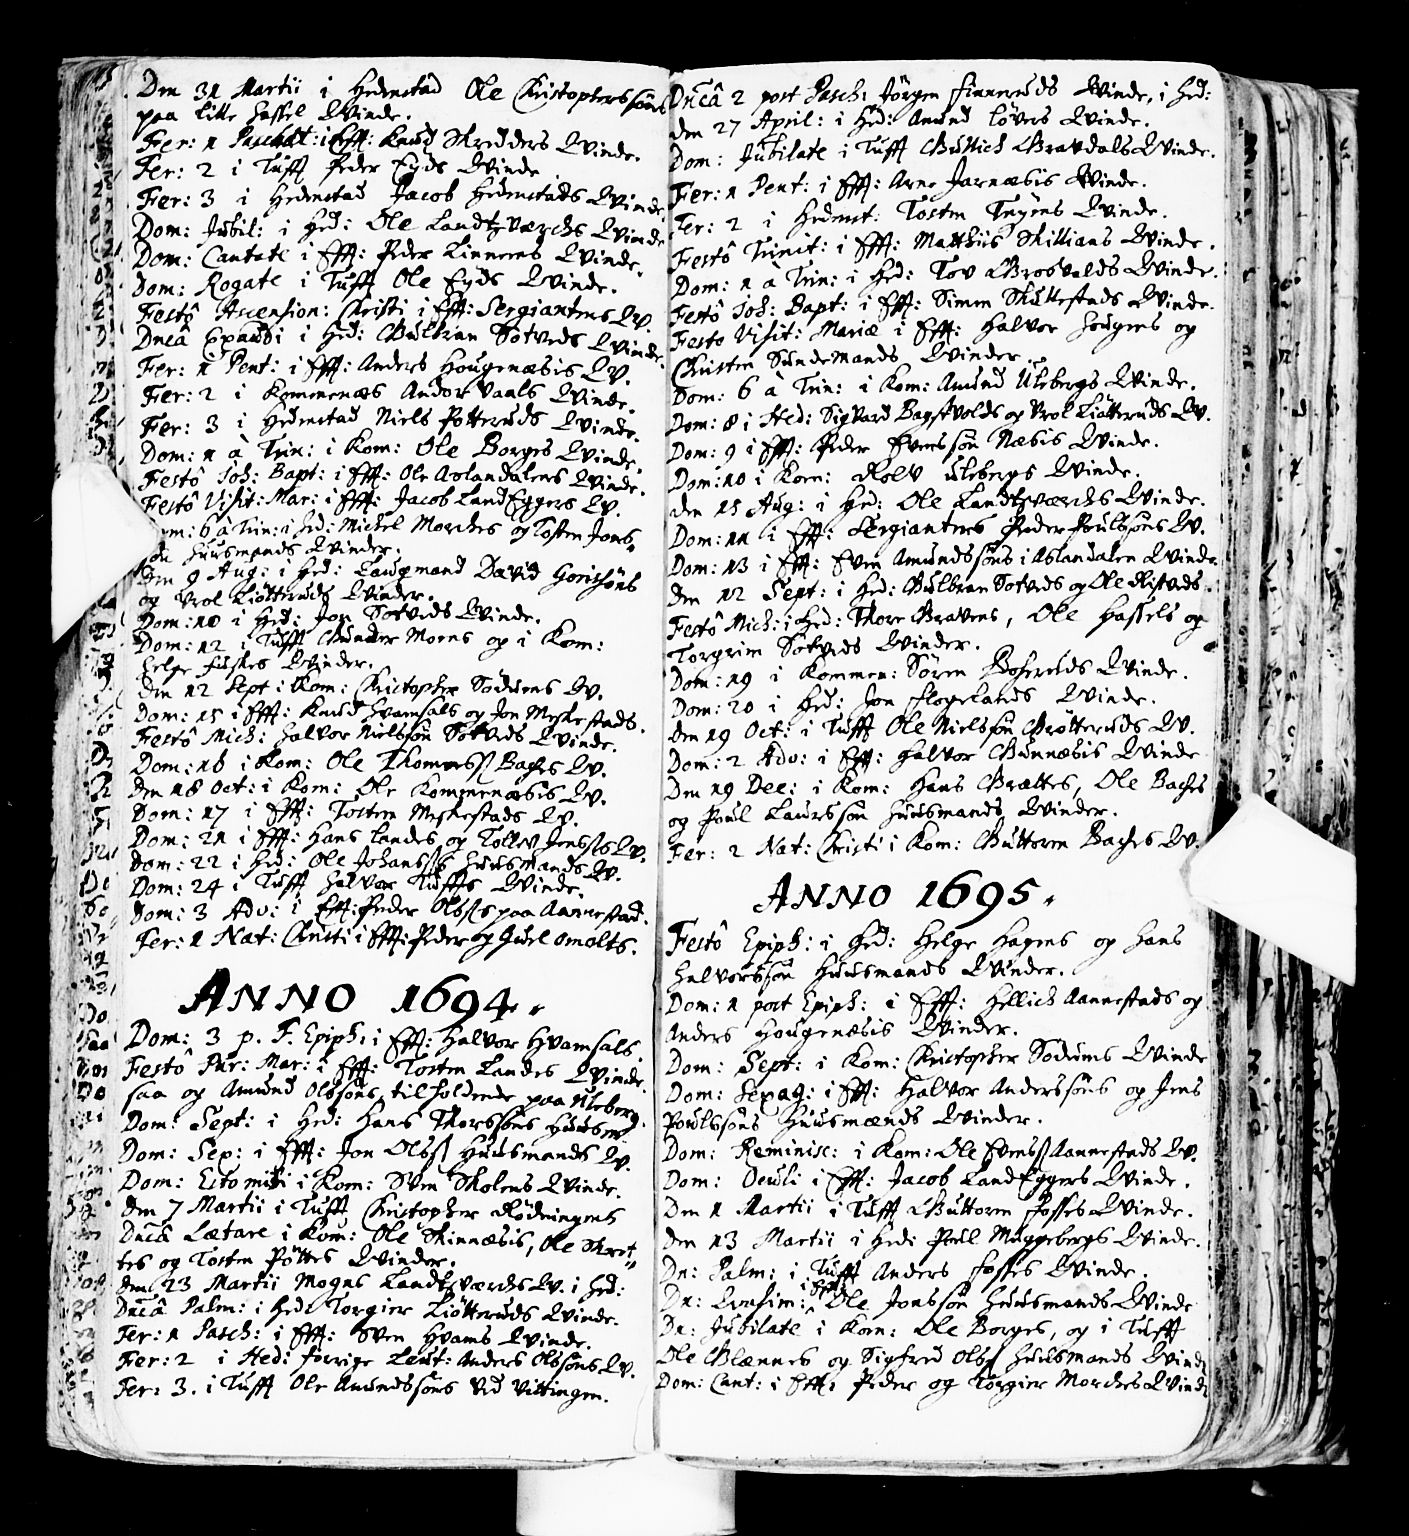 Den 31 Martii i Hedenstad Ole Christophersøns
paa Litle Hassel Qvinde.
Fer: 1 Paschat: i Efft: Knud Skredders Qvinde.
Fer: 2 i Tufft Peder Eyds Qvinde
Fer: 3 i Hedenstad Jacob Hedenstads Qvinde
Dom: Jubil: i Hed: Ole Landtzværchs Qvinde
Dom: Cantate i Efft: Peder Linnerns Qvinde.
Dom: Rogate i Tufft Ole Eyds Qvinde.
Festô Ascension: Christi i Efft: Sergiantens Qv.
Dncâ Exaudi i Hed: Gulbran Sotveds Qvinde.
Fer: 1 Pent: i Efft: Anders Hougenæsis Qv.
Fer: 2 i Kommenæs Andor Vaals Qvinde.
Fer: 3 i Hedenstad Niels Potteruds Qvinde.
Dom: 1 à Trin: i Kom: Ole Borges Qvinde.
Festô Joh: Bapt: i Efft: Ole Aslandalens Qvinde.
Festô Visit: Mar: i Efft: Jacob LandEggers Qv.
Dom: 6 à Trin: i Hed: Michel Morches og Tosten Jons-
søn Huusmands Qvinder.
Den 9 Aug: i Hed: Laugmand David Gorissøns
og Vrol Liøtteruds Qvinder.
Dom: 10 i Hed: Jon Sotveds Qvinde.
Dom: 12 i Tufft Gunder Moens og i Kom:
Helge Fuskes Qvinder.
Den 12 Sept i Kom: Christopher Sodums Qv.
Dom: 15 i Efft: Knud Hvamsals og Jon Meskestads.
Festô Mich: Halvor Nielssøn Sotveds Qvinde.
Dom: 16 i Kom: Ole Thomesß Baches Qv.
Den 18 Oct: i Kom: Ole Kommenæsis Qv.
Dom: 17 i Efft: Tosten Meskestads Qv.
Dom: 21 i Efft: Hans Landes og Tollev Jensß Qv.
Dom: 22 i Hed: Ole Johansß Huusmands Qv.
Dom: 24 i Tufft Halvor Tuffts Qvinde.
Dom: 3 Adv: i Efft: Peder Olsß paa Aannestad.
Fer: 1 Nat: Christi i Efft: Peder og Juel Omolts.
ANNO 1694.
Dom: 3 p. F. Epiph: i Efft: Halvor Hvamsals.
Festô Pur: Mar: i Efft: Tosten Landes Qvinde.
saa og Amund Olssøns, tilholdende paa Uleberg.
Dom: Sept: i Hed: Hans Thorssøns Huusm
Dom: Sex: i Efft: Jon Olsß Huusmands Qv.
Dom: Estomihi i Kom: Sven Skolens Qvinde.
Den 7 Martii i Tufft Christopher Rødningens
Dncâ Lætare i Kom: Ole Skinnæsis, Ole Skret-
tes og Tosten Pøttes Qvinder.
Den 23 Martii Mogns Landtzværchs Qv. i Hed:
Dncâ Palm: i Hed: Torgier Liøtteruds Qvinde.
Fer: 1 Pasch: i Efft: Sven Hvams Qvinde.
Fer: 2 i Hed: forrige Leut: Anders Olssøns Qv.
Fer: 3. i Tufft Ole Amundssøns Vid Vittingen.
Dncâ 2 post Pasch: Jørgen Finneruds Qvinde, i Hed:
Den 27 April: i Hed: Amund Løvers Qvinde.
Dom: Jubilate i Tufft Gullich Gravdals Qvinde.
Fer: 1 Pent: i Efft: Arne Jarnæsis Qvinde.
Fer: 2 i Hedenst: Tosten Teyens Qvinde.
Festô Trinit: i Efft: Matthiis Skillians Qvinde.
Dom: 1 à Trin: i Hed: Tov Grosvolds Qvinde.
Festô Joh: Bapt: i Efft: Simen Skuttestads Qvinde.
Festo Visit: Mariæ i Efft: Halvor Hougens og
Christen Sundemands Qvinder.
Dom: 6 à Trin: i Kom: Amund Ulebergs Qvinde.
Dom: 8 i Hed: Sigvard Bagstvolds og Vrol Liøtteruds Qv.
Dom: 9 i Efft: Peder Evenssøn Næsis Qvinde.
Dom: 10 i Kom: Rolv Ulebergs Qvinde.
den 15 Aug: i Hed: Ole Landtzværchs Qvinde.
Dom: 11 i Efft: Sergiantens Peder Poulssøns Qv.
Dom: 13 i Efft: Even Amundssøns i Aslandalen Qvinde.
Den 12 Sept: i Hed: Gulbran Sotveds og Ole Ristveds.
Festô Mich: i Hed: Thore Gravens, Ole Hassels og
Torgrim Sotveds Qvinder.
Dom: 19 i Kommen: Sören Boseruds Qvinde.
Dom: 20 i Hed: Jon Skogelands Qvinde.
Den 19 Oct: i Tufft Ole Nielssøn Grøtteruds Qv.
Dom: 2 Adv: i Efft: Halvor Gunnæsis Qvinde
Den 19 Dec: i Kom: Hans Brættes, Ole Baches
og Poul Laurssøn Huusmands Qvinder.
Fer: 2 Nat: Christi i Kom: Guttorm Baches Qv.
ANNO 1695.
Festô Epiph: i Hed: Helge Hagens og Hans
Halvorssøn Huusmands Qvinder.
Dom: 1 post Epiph: i Efft: Hellich Aannestads og
Anders Hougenæsis Qvinder.
Dom: Sept: i Kom: Christopher Sodums Qvinde
Dom: Sexag: i Efft: Halvor Anderssøns og Jens
Poulssøns Huusmænds Qvinder.
Dom: Reminisc: i Kom: Ole Evensß Aannestads Qv.
Dom: Oculi i Efft: Jacob LandEggers Qvinde.
Den 1 Martii i Tufft Guttorm Fosses Qvinde.
Den 13 Martii i Hed: Poul Muggebergs Qvinde.
Dn: Palm: i Tufft Anders Fosses Qvinde.
Dn: Qvasim: i Efft: Ole Jonssøn Huusmands Qvinde
Dn: Jubilate i Kom: Ole Borges, og i Tufft
Ole Blannes og Sigfred Olsß Huusmands Qvind
Dom: Cant: i Efft: Peder og Torgier Morches Qvind